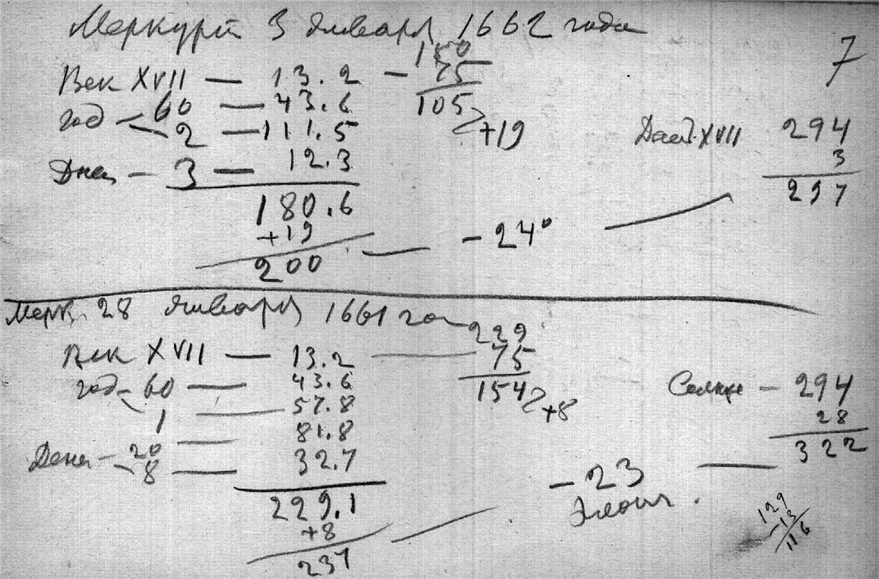 Меркурий 3 января 1662 года
7
180
Век XVII — 13.2 — 75
год 60 — 43.6 105
2 — 111.5 +19
Дней — 3 — 12.3
180.6
+19
200 — -24°
XVII 294
3
297
Мерк. 28 января 1661 го
229
Век XVII — 13.2 — 75
год — 60 — 43.6 154
1 — 57.8 +8
20 — 81.8
Дней — 8 — 32.7
229.1
+8
237
Солнце — 294
28
322
-23
129
-13
116